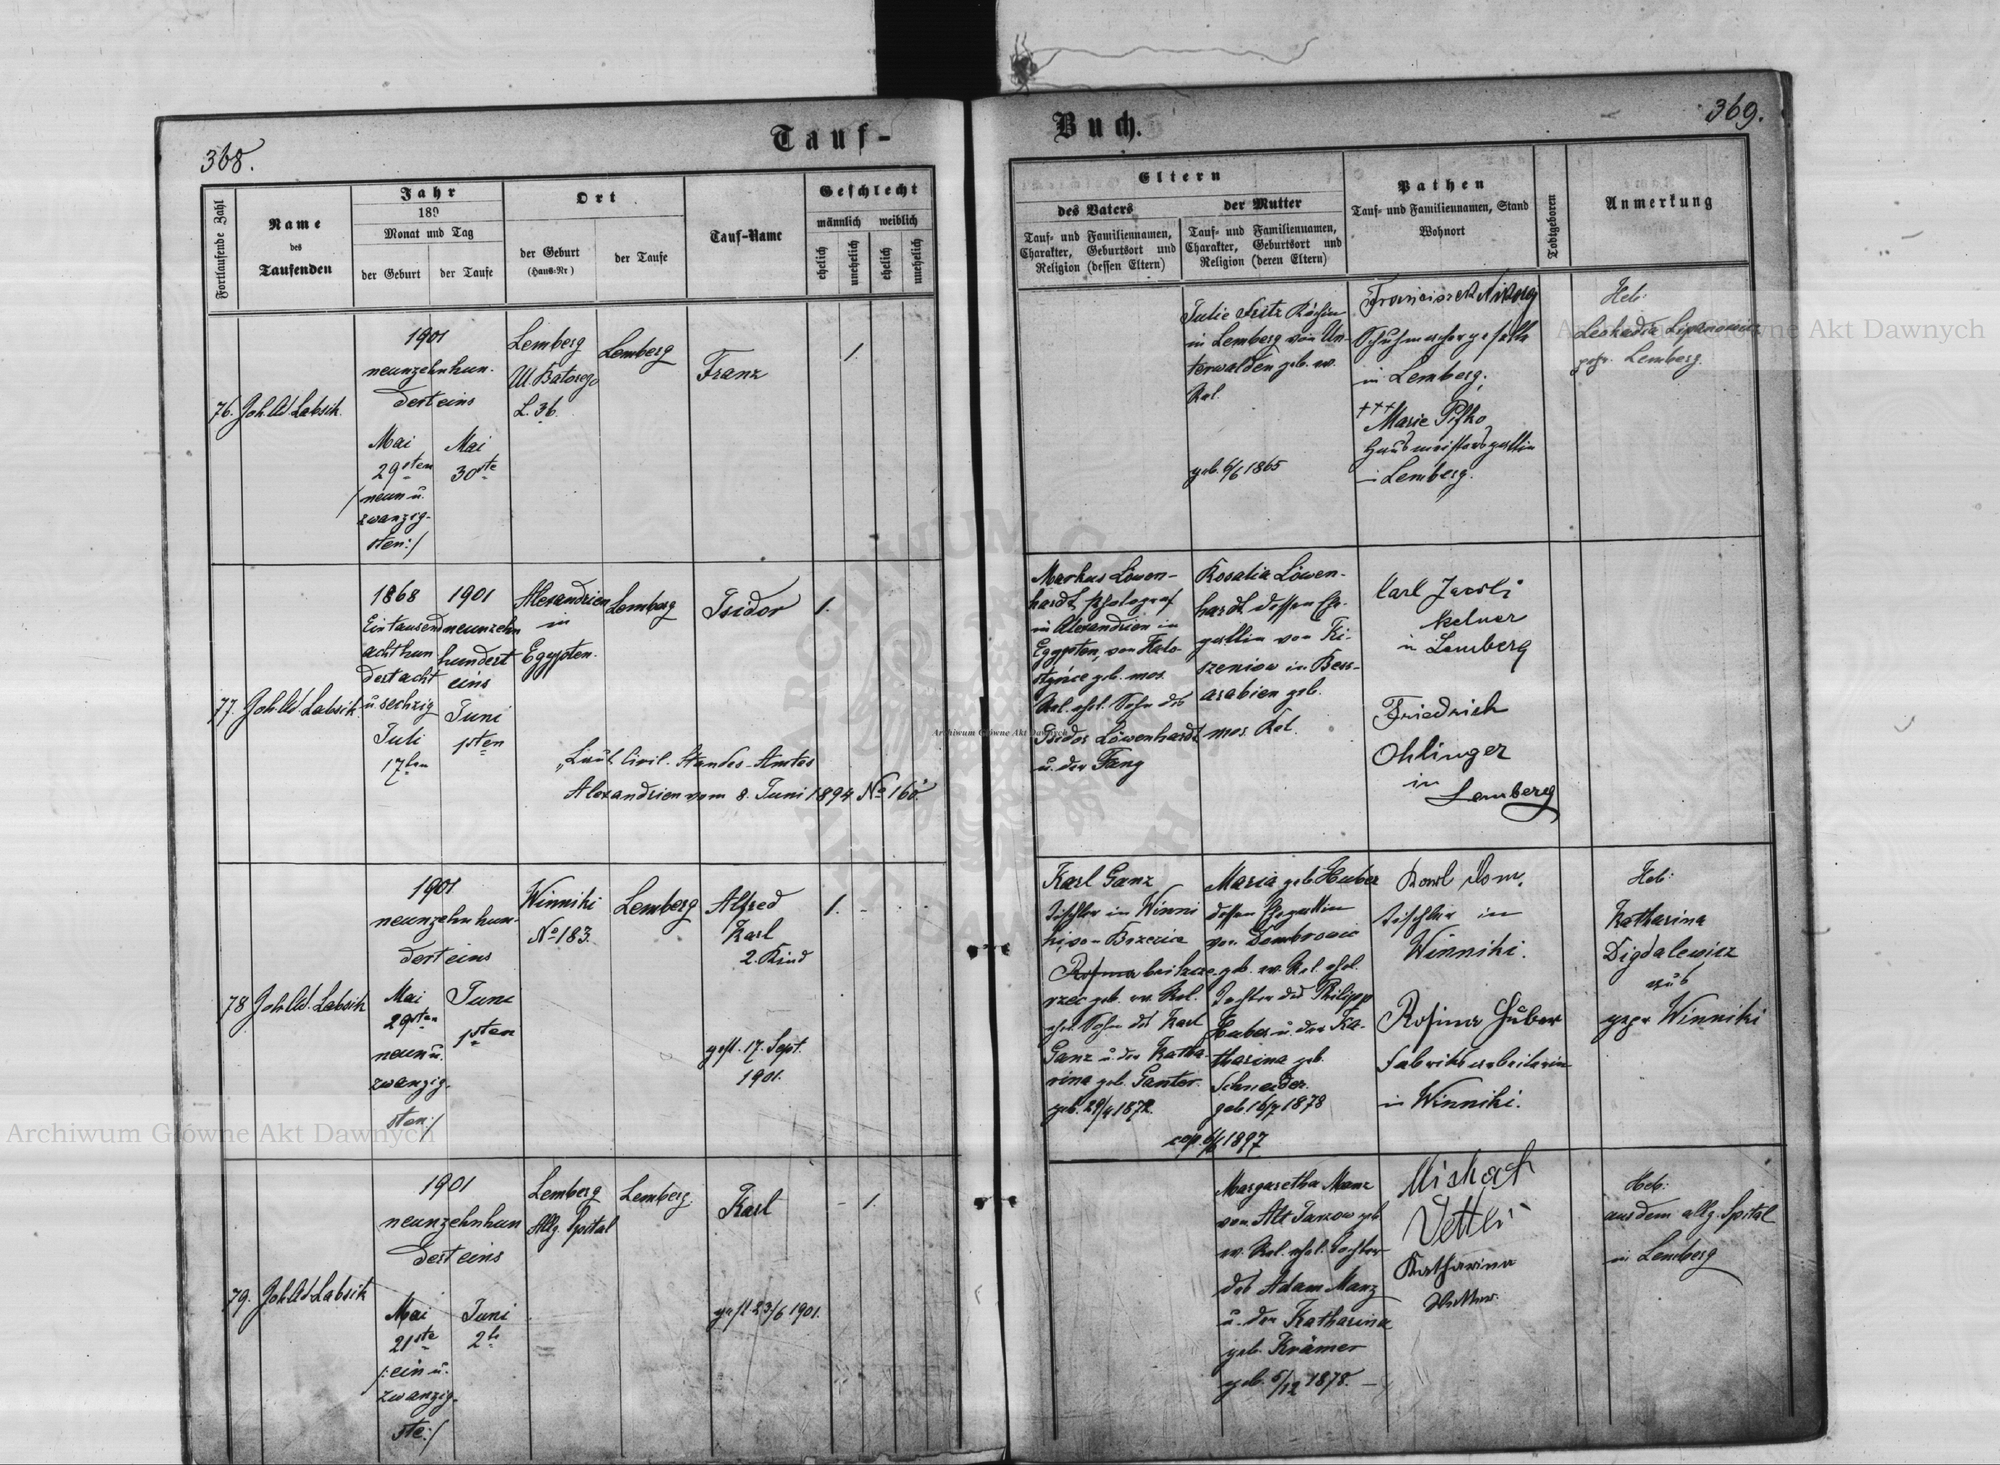 368.
Tauf-
Fortlaufende Zahl
Name
des
Taufenden
Jahr
189
Monat und Tag
der Geburt
der Taufe
Ort
der Geburt
(Haus-Nr)
der Taufe
Tauf-Name
Geschlecht
männlich
weiblich
ehelich
unehelich
ehelich
unehelich
76.
Joh. Ad. Labsik.
1901
neunzehnhun-
dert eins
Mai
29sten
/neun u.
zwanzig-
sten:/
Mai
30ste
Lemberg
Ul. Batorego
L. 36.
Lemberg
Franz
1.
77.
Joh. Ad. Labsik.
1868
Ein tausend
acht hun
dert acht
u. sechzig
Juli
17ten
1901
neunzehn
hundert
eins
Juni
1sten
Alexandrien
in
Egypten.
Lemberg
Isidor
1.
"Laut Civil-Standes-Amtes
Alexandrien vom 8. Juni 1894 No 160."
78.
Joh. Ad. Labsik
1901
neunzehnhun-
dert eins
Mai
29sten
neun u.
zwanzig-
sten:/
Juni
1sten
Winniki
No 183.
Lemberg
Alfred
Karl
2. Kind
gest. 17. Sept.
1901.
1.
79.
Joh. Ad. Labsik
1901
neunzehnhun
dert eins
Mai
21ste
/:ein u.
zwanzig-
ste:/
Juni
2te
Lemberg
Allg. Spital
Lemberg.
Karl
gest 23/6 1901.
1.
Buch.
369.
Eltern
des Vaters
Tauf- und Familiennamen,
Charakter, Geburtsort und
Religion (dessen Eltern)
der Mutter
Tauf- und Familiennamen,
Charakter, Geburtsort und
Religion (deren Eltern)
Pathen
Tauf- und Familiennamen, Stand
Wohnort
Todtgeboren
Anmerkung
Julie Fritz Köchin
in Lemberg von Un-
terwalden geb. ev.
Rel.
geb. 6/6 1865
Franciszek
Schuhmachergeselle
in Lemberg.
+++
Marie Pifko
Hausmeistersgattin
in Lemberg.
Heb:
Leokadia
gepr. Lemberg.
Markus Löwen-
hardt, Photograf
in Alexandrien in
Egypten, von
geb. mos.
Rel. ehel. Sohn des
Isidor Löwenhardt
u. der Fang
Rosalia Löwen-
hardt dessen Ehe-
gattin von Ki-
szeniow in Bess-
arabien geb.
mos. Rel.
Karl
Kelner
in Lemberg
Friedrich
Ohlinger
in
Lemberg
Karl Ganz
Tischler in Winni
ki, von
geb. ev. Rel.
ehel. Sohn des Karl
Ganz u. der Katha-
rina geb. Ganter.
geb. 29/4 1872.
Maria geb. Huber
dessen Ehegattin
von
geb. ev. Rel. ehel.
Tochter des Philipp
Huber u. der Ka-
tharina geb.
Schneider.
geb. 16/7 1878
cop. 6/6 1897
Karl Dom.
Tischler in
Winniki.
Rosina Huber
Fabriksarbeiterin
in Winniki.
Heb:
Katharina
Digdalewicz
aus
gepr Winniki
Margaretha Manz
von Alt Jarzow geb
ev. Rel. ehel. Tochter
des Adam Manz
u. der Katharina
geb. Krämer
geb. 5/12 1878. —
Katharina
Heb:
aus dem allg. Spital
in Lemberg
Archiwum Główne Akt Dawnych
Archiwum Główne Akt Dawnych
Archiwum Główne Akt Dawnych